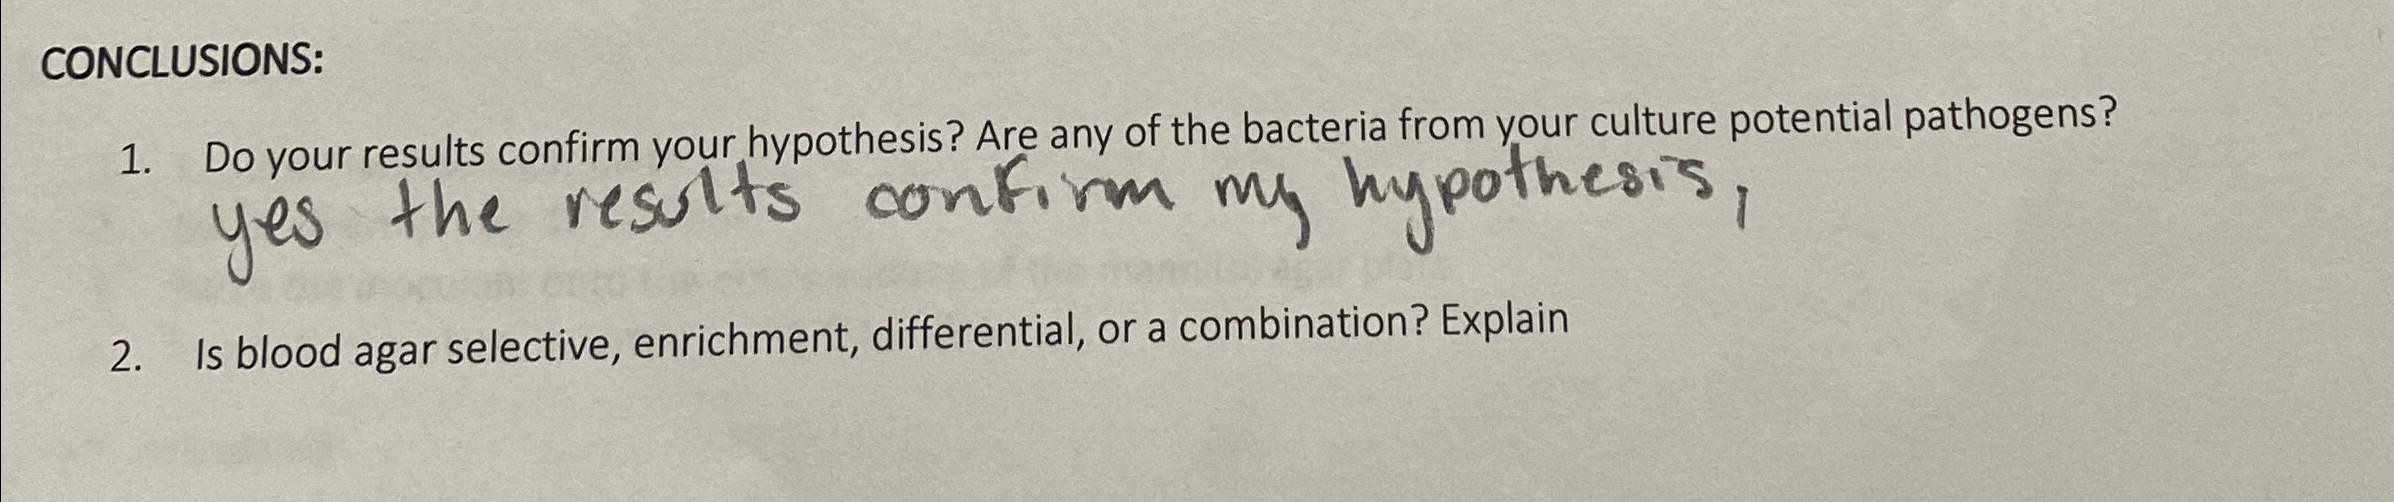 CONCLUSIONS:
1. Do your results confirm your hypothesis? Are any of the bacteria from your culture potential pathogens?
yes the results confirm my hypothesis,
of the mannitol agar plate
2. Is blood agar selective, enrichment, differential, or a combination? Explain